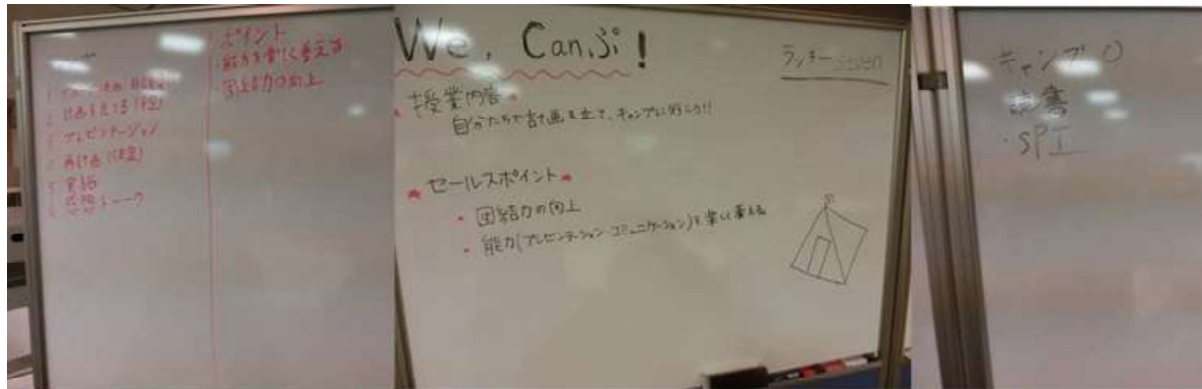 2 計画を立てる(仮)
3 プレゼンテーション
4 再計画(決定)
5 実施
6 感想トーク
ポイント
・能力を楽しく養える
・団結力の向上
We, Canぷ!
ラッキーseven
* 授業内容 *
自分たちで計画を立て、キャンプに行こう!!
* セールスポイント *
・団結力の向上
・能力(プレゼンテーション・コミュニケーション)を楽しく養える
キャンプ〇
読書
・SPI